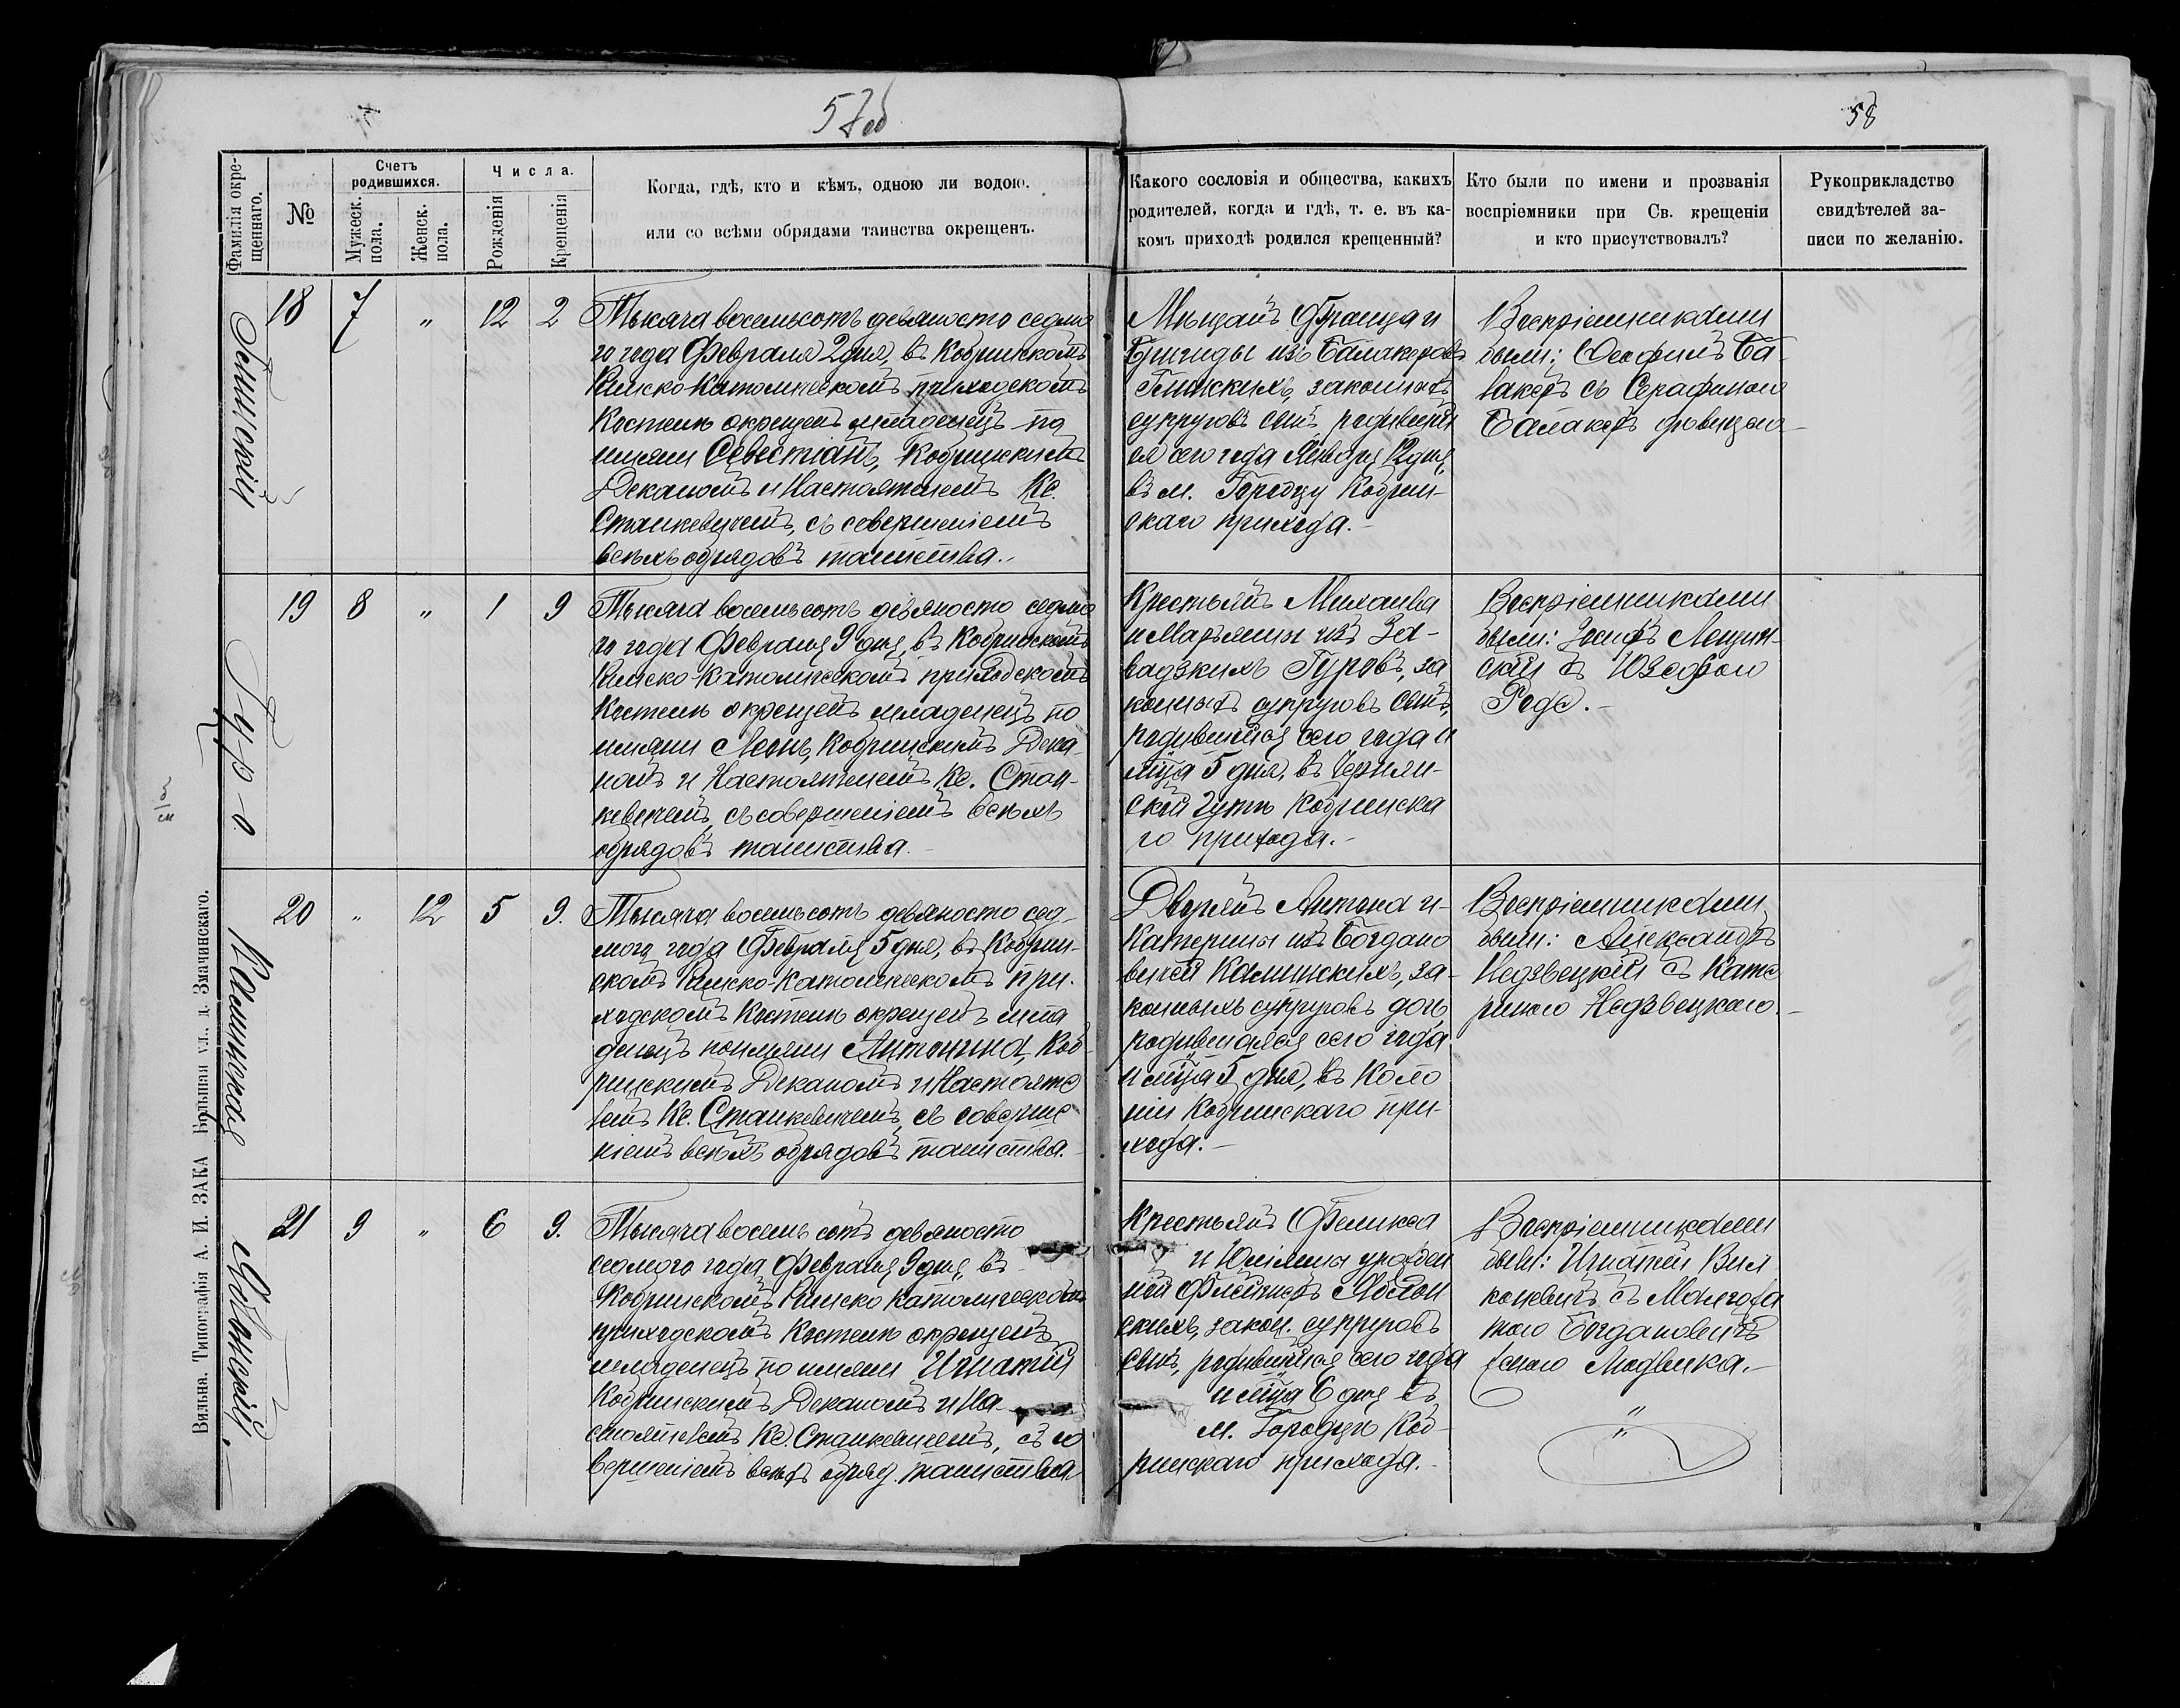 57об
58
Фамилія окре-
щеннаго.
№
Счетъ
родившихся.
Мужеск.
пола.
Женск.
пола.
Числа.
Рожденія
Крещенія
Когда, гдѣ, кто и кѣмъ, одною ли водою,
или со всѣми обрядами таинства окрещенъ.
Какого сословія и общества, какихъ
родителей, когда и гдѣ, т. е. въ ка-
комъ приходѣ родился крещенный?
Кто были по имени и прозванія
воспріемники при Св. крещеніи
и кто присутствовалъ?
Рукоприкладство
свидѣтелей за-
писи по желанію.
18
7
"
12
2
Тысяча восемьсотъ девяносто седмо
го года Февраля 2 дня, въ Кобринскомъ
Римско-Католическомъ приходскомъ
Костелѣ окрещенъ младенецъ по
имени Севестіанъ, Кобринскимъ
Деканомъ и Настоятелемъ Кс.
Станкевичемъ, съ совершеніемъ
всѣхъ обрядовъ таинства.-
Мѣщанъ Франца и
Бригиды изъ Балакеровъ
законныхъ
супруговъ сынъ, родившій
ся сего года Января 12 дня,
въ м. Городцу Кобрин-
скаго прихода.-
Воспріемниками
были: Ѳеофилъ Ба-
лакеръ съ Серафиною
Балакеръ дѣвицею-
19
8
"
1
9
Гуро.
Тысяча восемьсотъ девяносто седмо
го года Февраля 9 дня, въ Кобринскомъ
Римско-Католическомъ приходскомъ
Костелѣ окрещенъ младенецъ по
имени Леонъ, Кобринскимъ Дека
номъ и Настоятелемъ Кс. Стан-
кевичемъ, съ совершеніемъ всѣхъ
обрядовъ таинства.-
Крестьянъ Михаила
и Марьянны изъ За-
вадзкихъ Гуровъ, за
конныхъ супруговъ сынъ,
родившійся сего года и
мца 5 дня, въ Черня-
ской Гутѣ Кобринска
го прихода.-
Воспріемниками
были: Іосифъ Лещин-
скій съ Юзефою
Роде.-
20
"
12
5
9.
Калинская
Тысяча восемьсотъ девяносто сед-
мого года Февраля 5 дня, въ Кобрин-
скомъ Римско-Католическомъ при-
ходскомъ Костелѣ окрещенъ мла
денецъ по имени Антонина, Коб-
ринскимъ Деканомъ и Настояте
лемъ Кс. Станкевичемъ, съ соверше
ніемъ всѣхъ обрядовъ таинства.-
Дворянъ Антона и-
Катерины изъ Богдано
вичей Калинскихъ, за-
конныхъ супруговъ дочь,
родившаяся сего года
и мца 5 дня, въ Коло
ніи Кобринскаго при-
хода.-
Воспріемниками
были: Александръ
Недзвецкій съ Кате
риною Недзвецкою.-
21
9
"
6
9.
Яблонскій.-
Тысяча восемьсотъ девяносто
седмого года Февраля 9 дня, въ
Кобринскомъ Римско Католическомъ
приходскомъ Костелѣ окрещенъ
младенецъ по имени Игнатій
Кобринскимъ Деканомъ и На-
стоятелемъ Кс. Станкевичемъ, съ со
вершеніемъ всѣхъ обряд. таинства
Крестьянъ Феликса
и Юліянны урожден
ной Яблон
скихъ, закон. супруговъ
сынъ, родившійся сего года
и мца 6 дня въ
м. Городцѣ Коб-
ринскаго прихода.-
Воспріемниками
были: Игнатій Вил
коневичъ съ Малгожа
тою Богдановичъ
женою Людвика.-
Вильна. Типографія А. И. ЗАКА Большая ул., д. Змачинскаго.